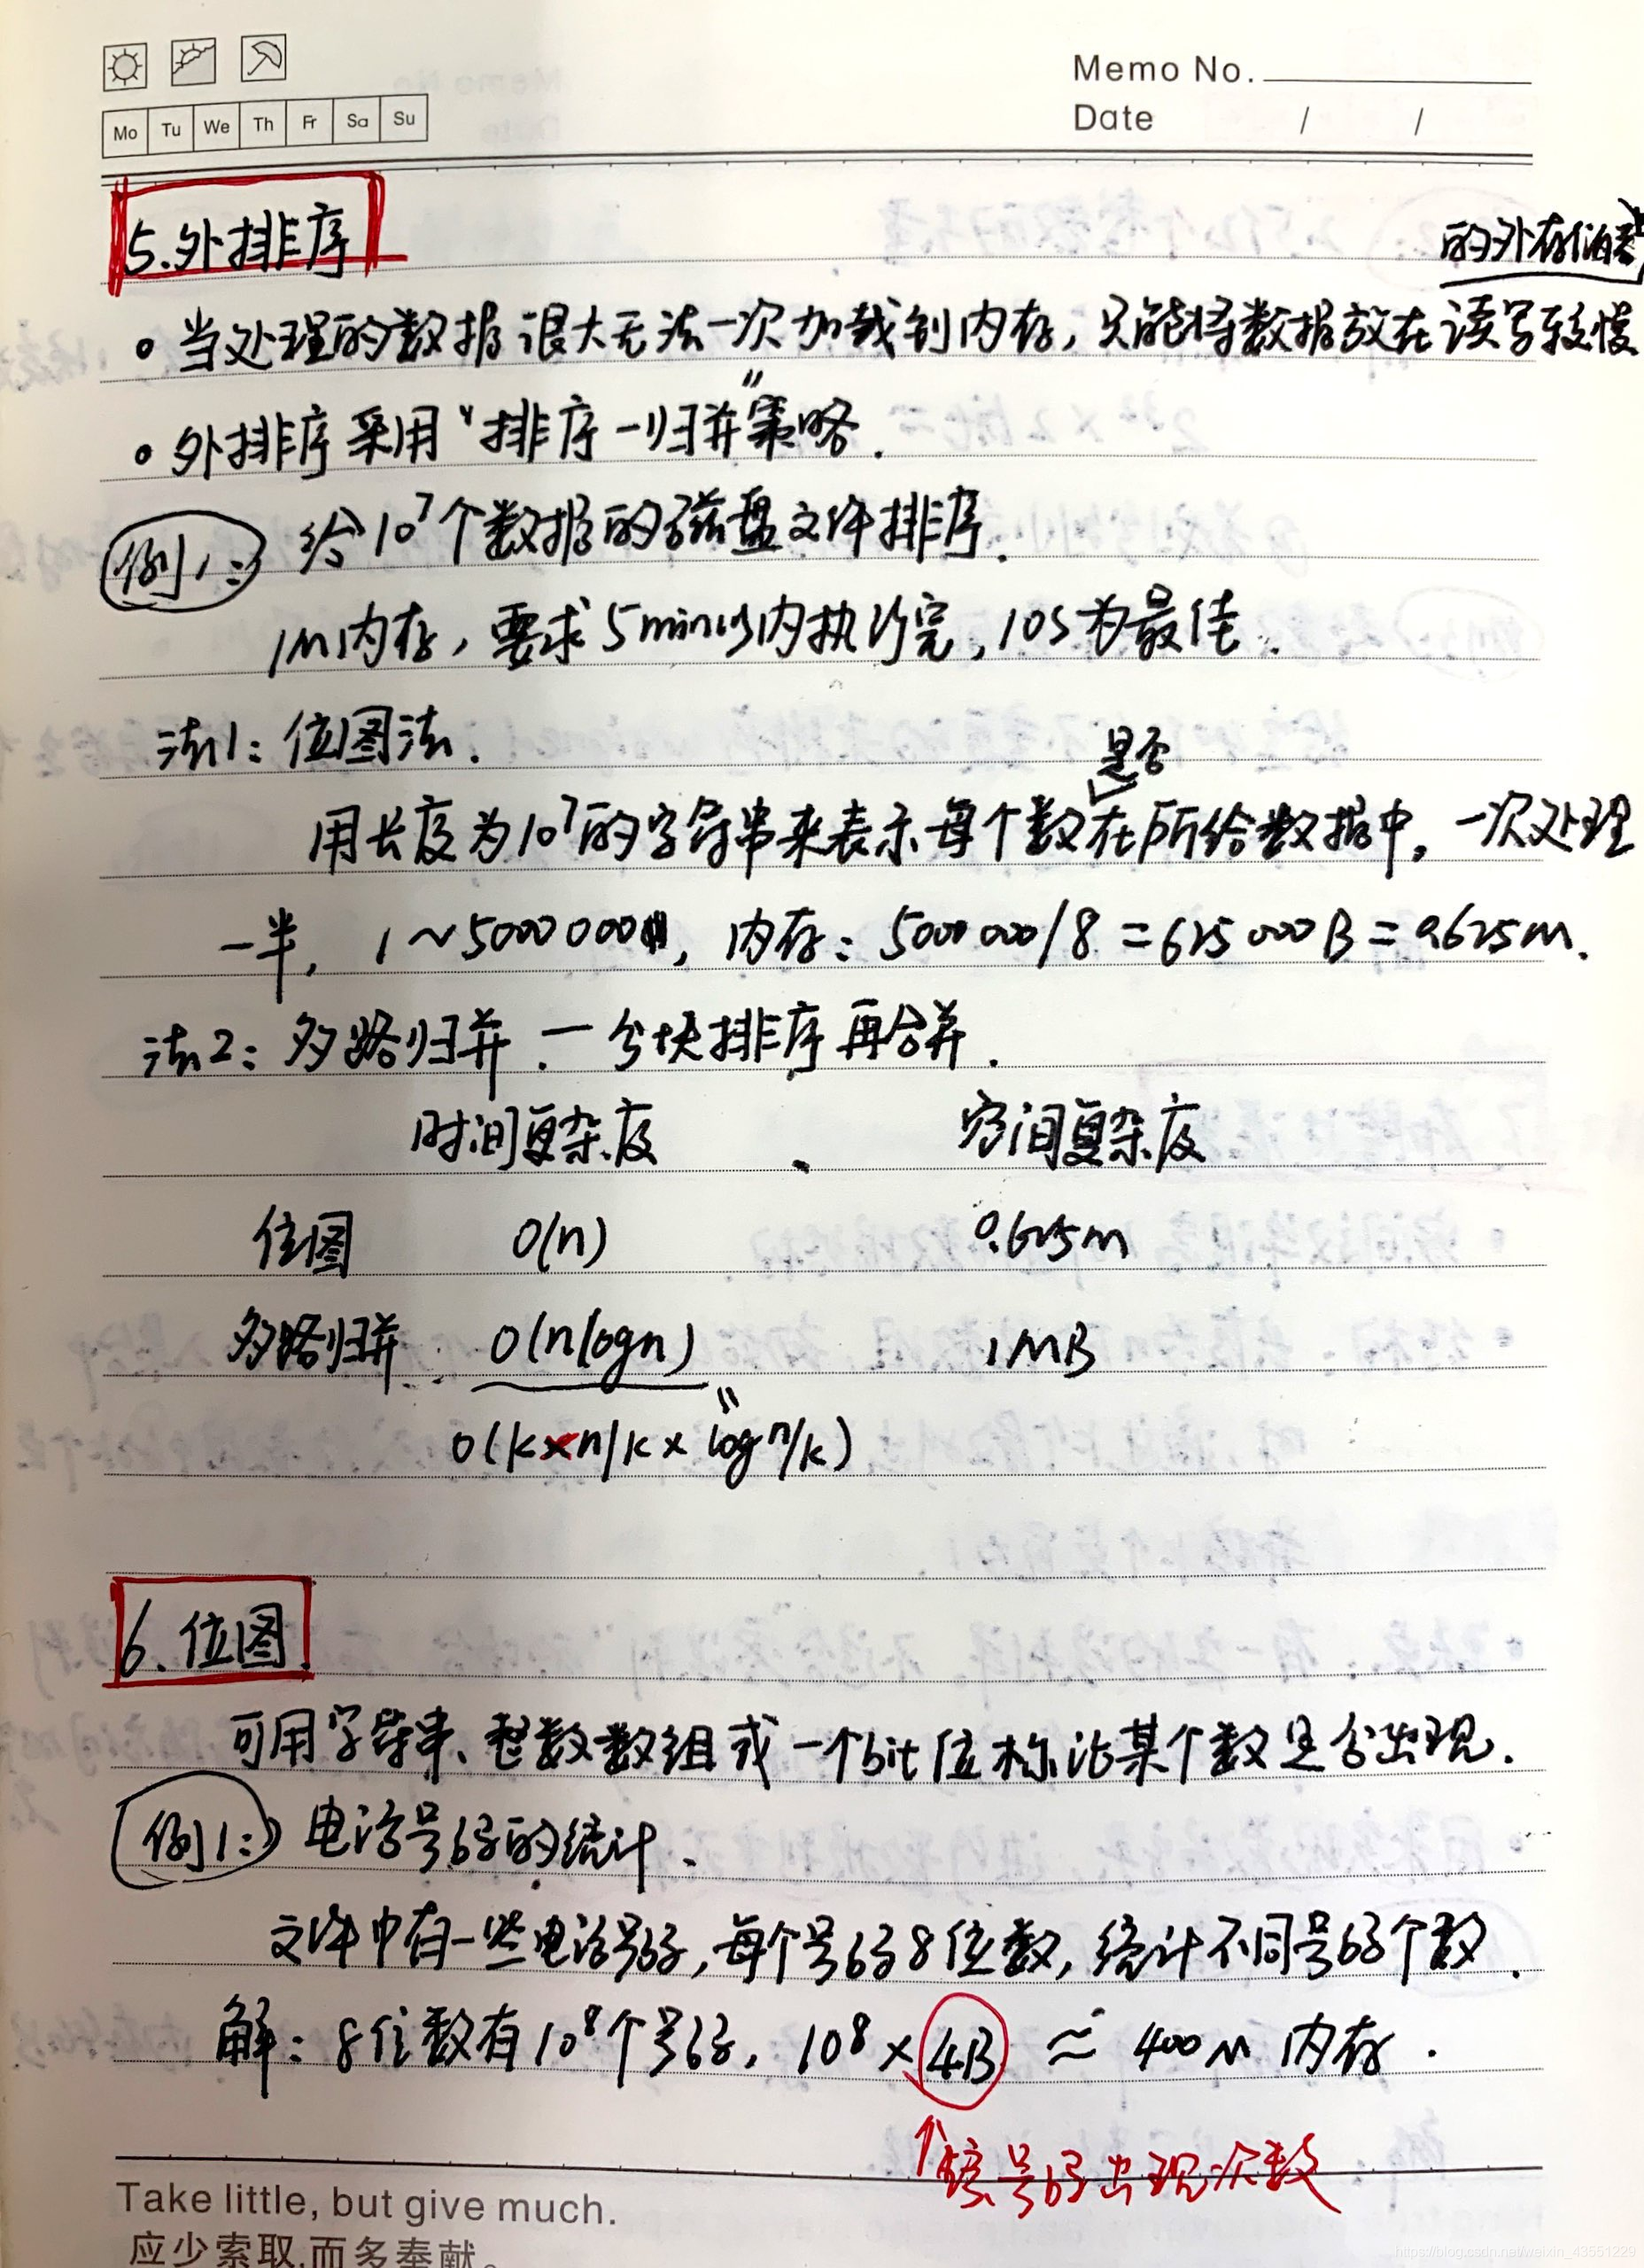 Memo No.
Mo Tu We Th Fr Sa Su
Date / /
5.外排序
的外存储
。当处理的数据很大无法一次加载到内存,只能将数据放在读写较慢
。外排序采用“排序-归并”策略.
例1:
给10^7个数据的磁盘文件排序.
1M内存,要求5min以内执行完,10S为最佳.
法1:位图法.
是否
用长度为10^7的字符串来表示每个数在所给数据中,一次处理
一半, 1~5000000, 内存:5000000/8=625000B=0.625m.
法2:多路归并.—分块排序再合并.
时间复杂度 空间复杂度
位图 O(n) 0.625m
多路归并 O(nlogn) 1MB
O(k×n/k×logn/k)
6.位图
可用字符串、整数数组或一个bit位标记某个数是否出现.
例1:
电话号码的统计.
文件中有一些电话号码,每个号码8位数,统计不同号码个数.
解:8位数有10^8个号码, 10^8×4B≈400M内存.
↑该号码出现次数
Take little, but give much.
应少索取,而多奉献。
https://blog.csdn.net/weixin_43551229